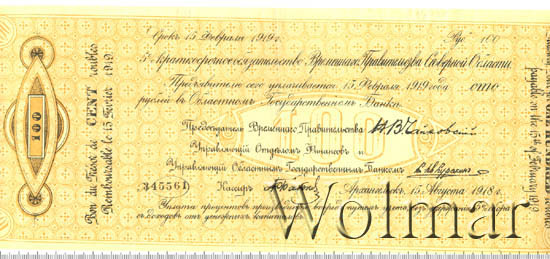 Срокъ 15 Февраля 1919 г. Руб. 100
5% Краткосрочное обязательство Временнаго Правительства Северной Области.
Предъявителю сего уплачивается 15 Февраля 1919 года сто
рублей въ Областномъ Государственномъ Банке.
Председатель Временнаго Правительства Н В Чайковскій
Управляющій Отделомъ Финансовъ и
Управляющій Областнымъ Государственнымъ Банкомъ
345561 Кассиръ Архангельскъ, 15 Августа 1918 г.
Уплата процентовъ
съ доходовъ отъ денежныхъ капиталовъ.
Bon du Trésor de CENT roubles
Remboursable le 15 Février 1919
100
payable on the 15th of February 1919
Wolmar